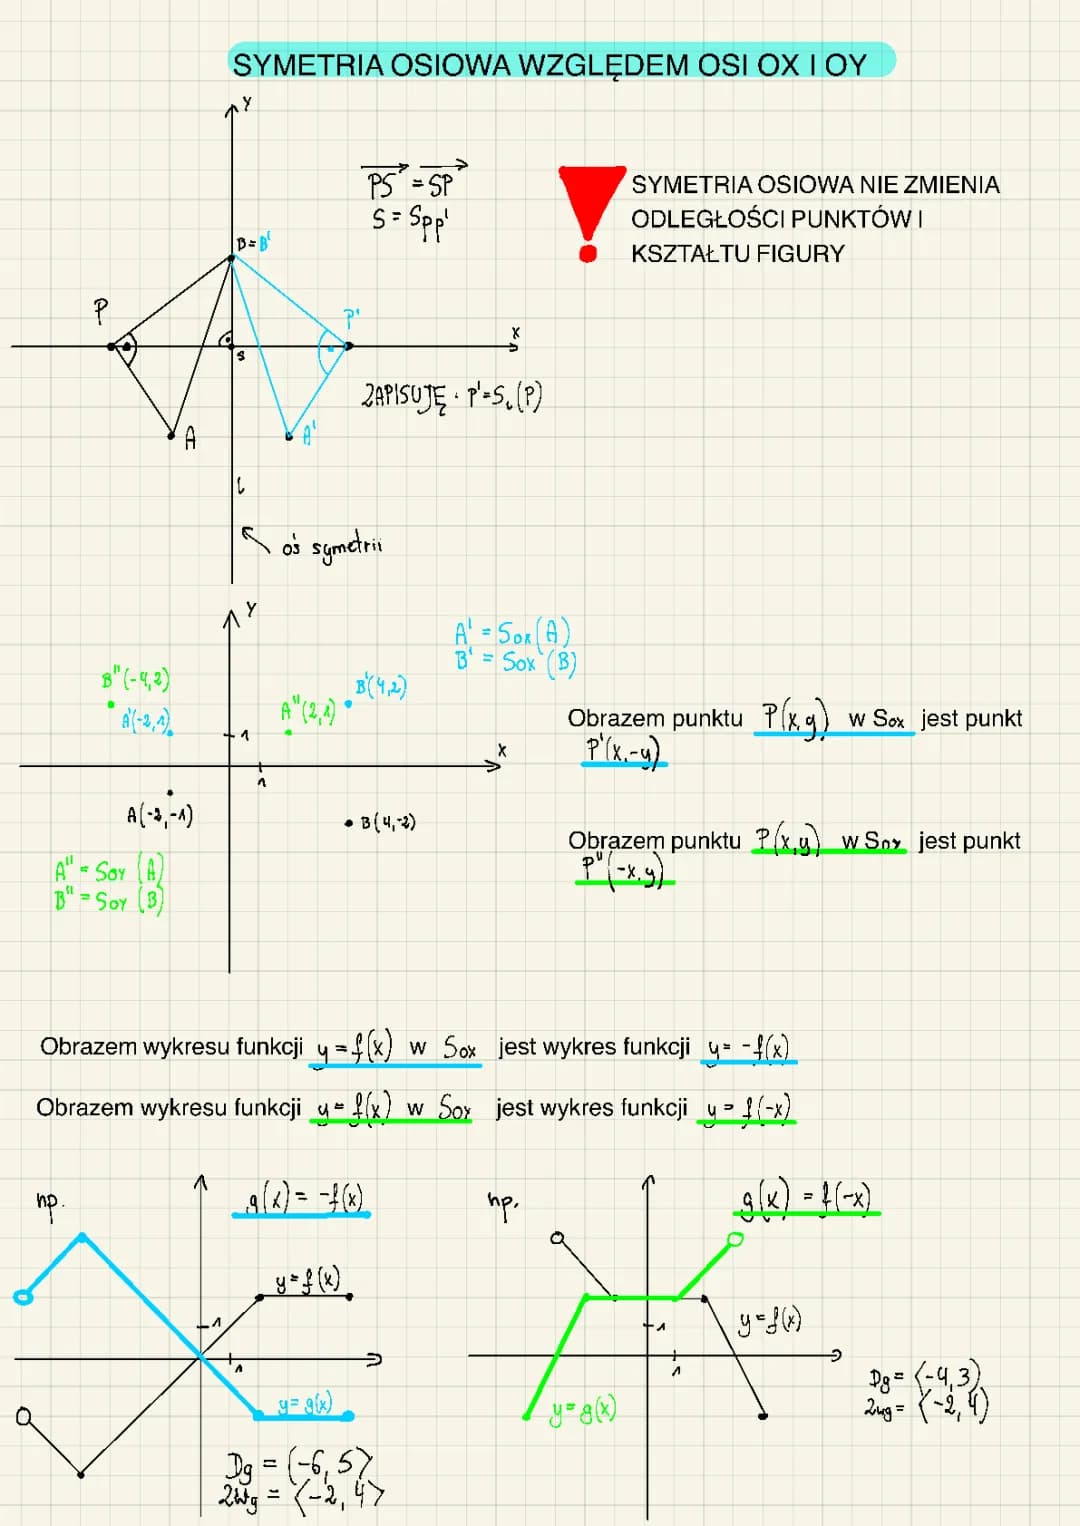 SYMETRIA OSIOWA WZGLĘDEM OSI OX I OY
Y
PS = SP'
S = Spp'
SYMETRIA OSIOWA NIE ZMIENIA
ODLEGŁOŚCI PUNKTÓW I
KSZTAŁTU FIGURY
B=B'
P
P'
X
S
ZAPISUJĘ · P'=S (P)
A
A'
l
oś symetrii
Y
A' = Sox (A)
B' = Sox (B)
B"(-4,2)
B'(4,2)
A'(-2,1)
A"(2,1)
1
X
1
Obrazem punktu P(x,y) w Sox jest punkt
P'(x,-y)
A(-2,-1)
B(4,-2)
Obrazem punktu P(x,y) w Soy jest punkt
P"(-x,y)
A" = SOY (A)
B" = SOY (B)
Obrazem wykresu funkcji y=f(x) w Sox jest wykres funkcji y= -f(x)
Obrazem wykresu funkcji y=f(x) w Soy jest wykres funkcji y= f(-x)
np.
g(x)= -f(x)
y=f(x)
1
1
y=g(x)
Dg = (-6,5⟩
Zwg = ⟨-2,4⟩
np.
g(x) = f(-x)
1
y=f(x)
1
y=g(x)
Dg = ⟨-4,3)
Zwg = ⟨-2,4)